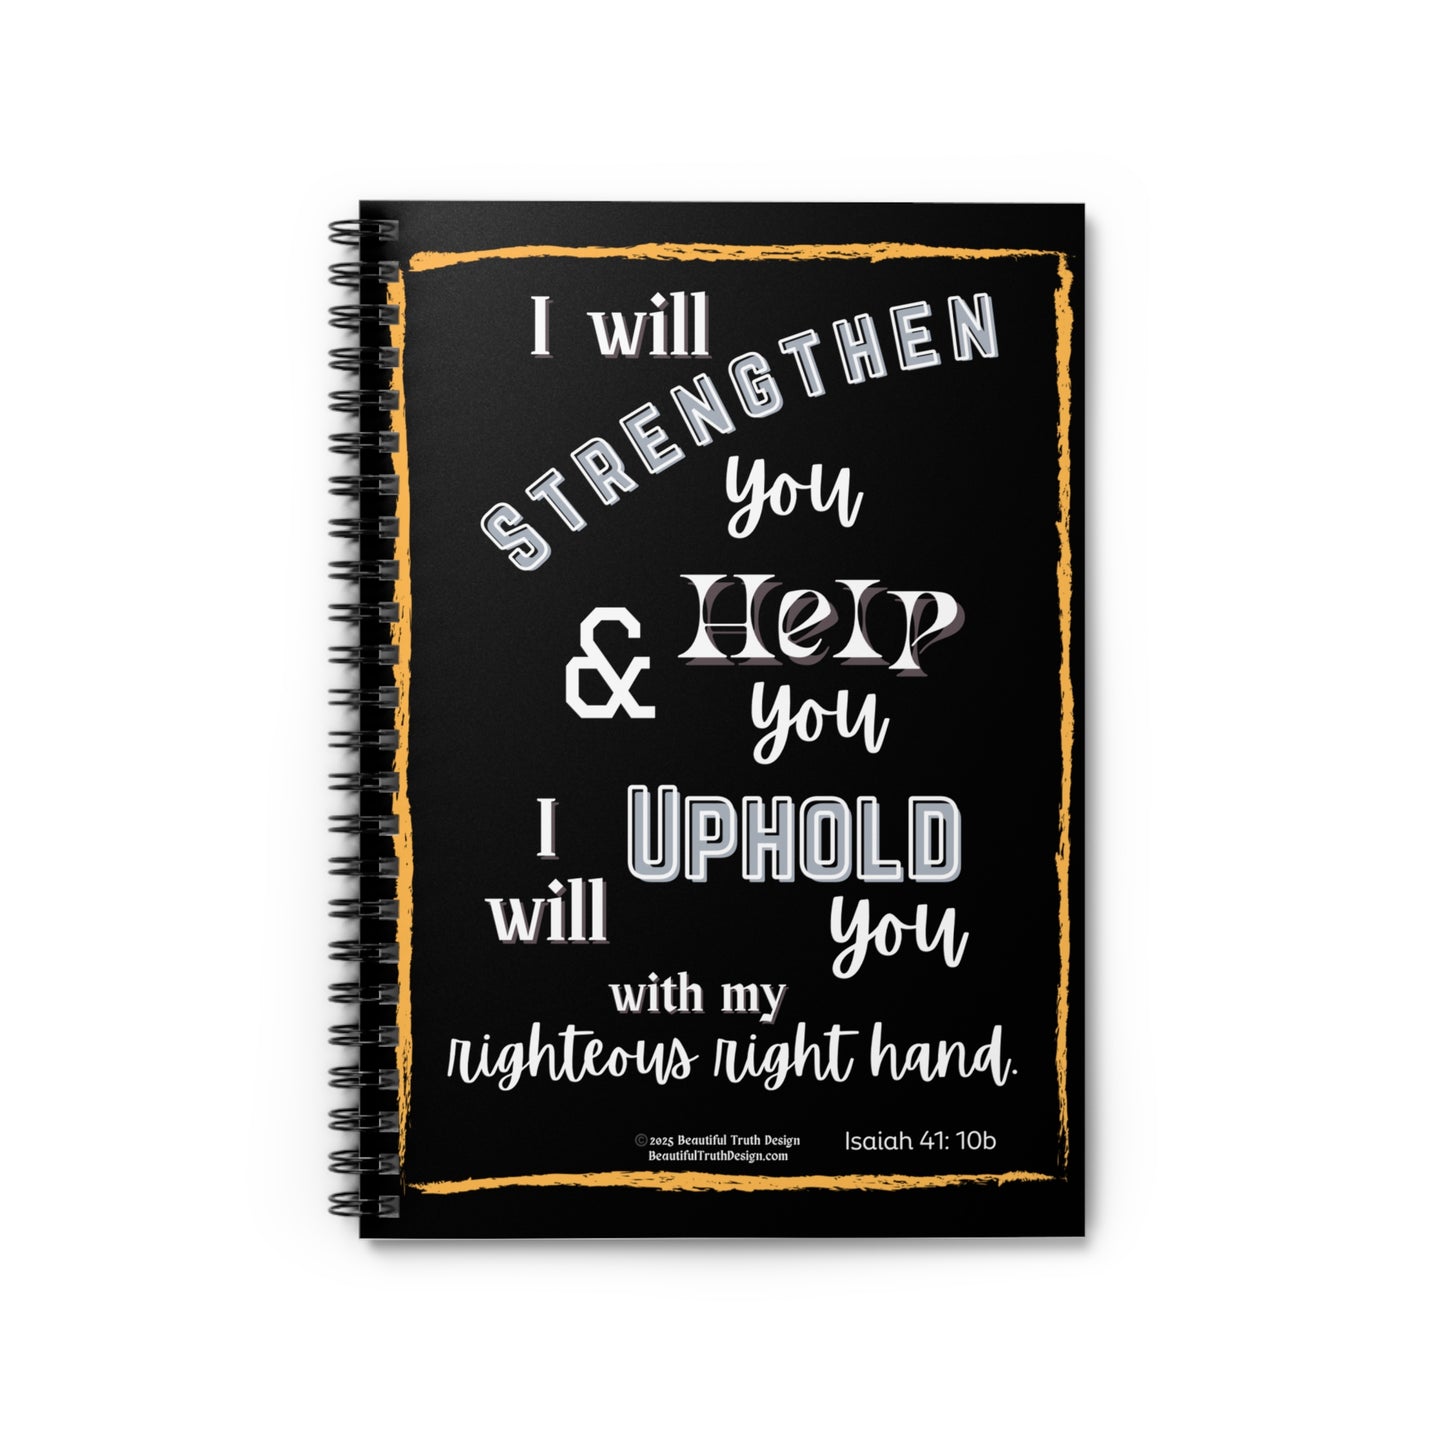 I will
STRENGTHEN
you
& HelP
you
I UPHOLD
will you
with my
righteous right hand.
©2025 Beautiful Truth Design
BeautifulTruthDesign.com
Isaiah 41: 10b